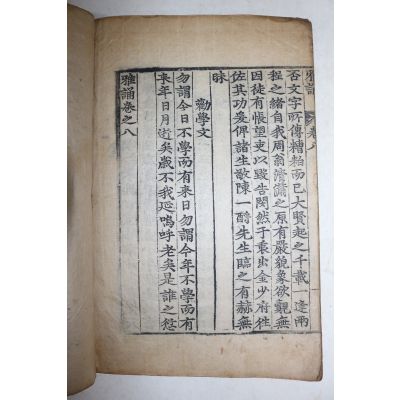 雅誦 卷八
否文字所傳糟粕而已大賢起之千載一逢兩
程之緒自我周翁之原有嚴貌象欲觀無
因徒有悵望吏以毀告閔然于衷出金少府往
佐其功爰俾諸生敬陳一酹先生臨之有赫無
昧
勸學文
勿謂今日不學而有来日勿謂今年不學而有
来年日月逝矣歲不我延嗚呼老矣是誰之愆
雅誦卷之八